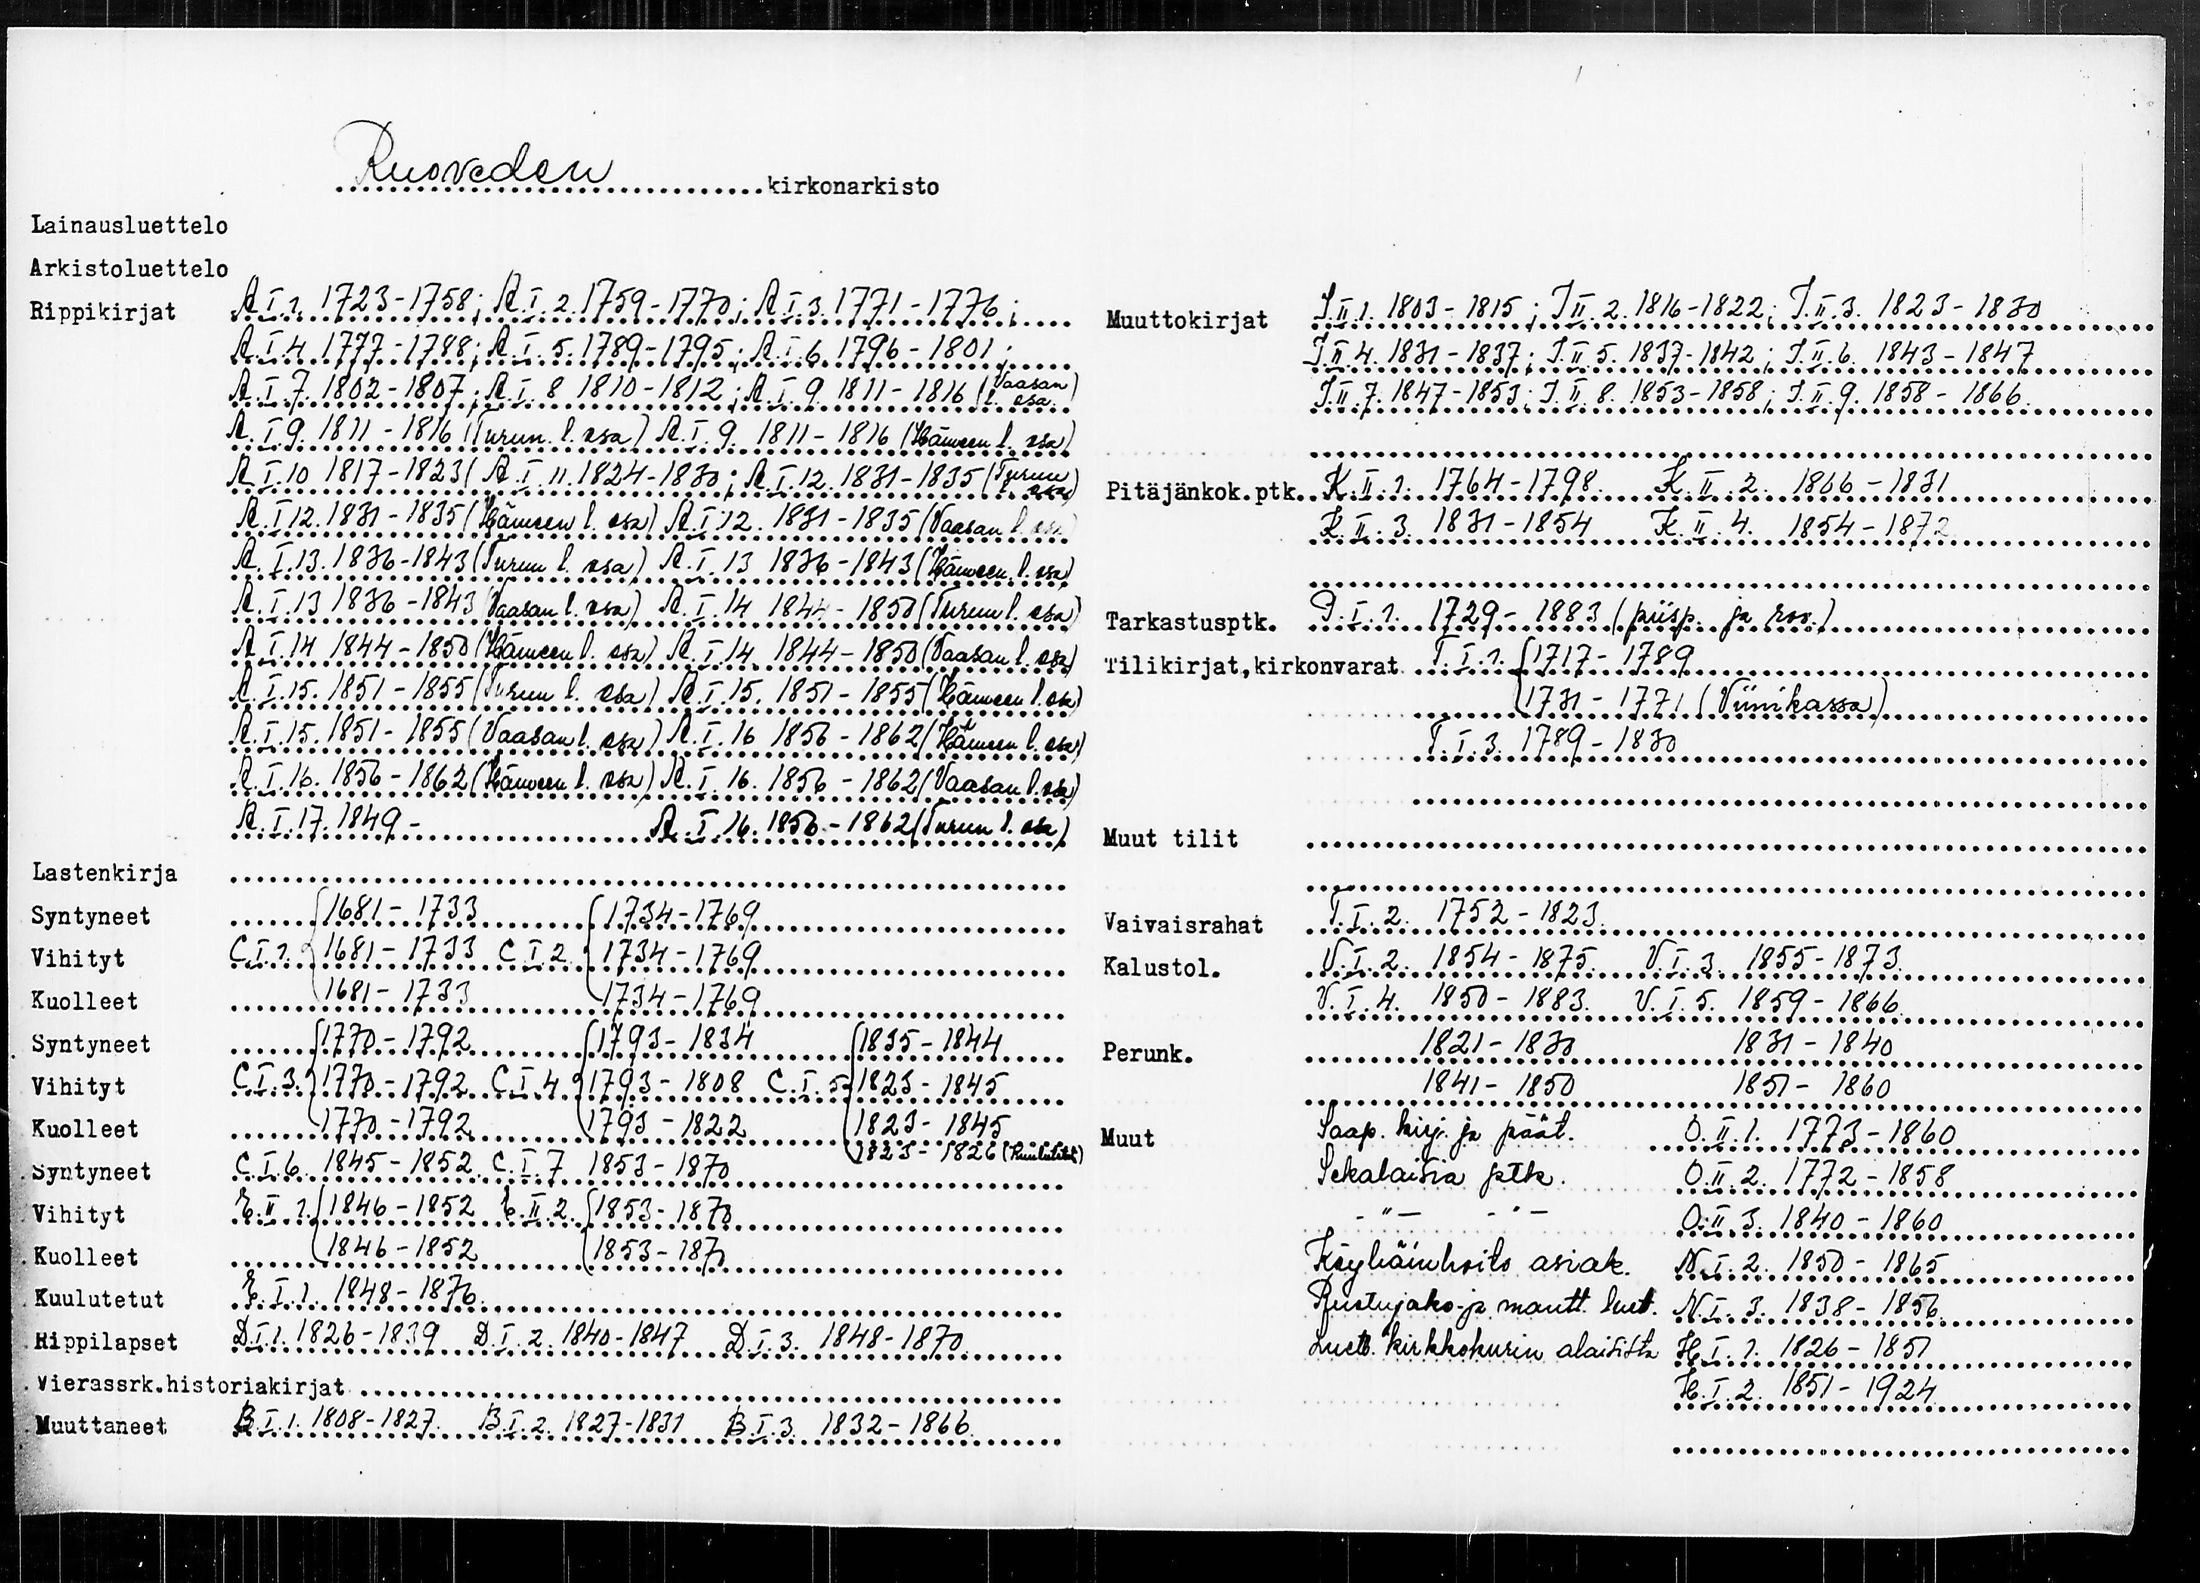 Ruoveden kirkonarkisto
Lainausluettelo
Arkistoluettelo
Rippikirjat A.I.1. 1723-1758; A.I.2. 1759-1770; A.I.3. 1771-1776;
A.I.4 1777-1788; A.I.5. 1789-1795; A.I.6. 1796-1801;
A.I.7. 1802-1807; A.I.8 1810-1812; A.I.9 1811-1816 (Vaasan l. osa)
A.I.9. 1811-1816 (Turun l. osa) A.I.9. 1811-1816 (Hämeen l. osa)
A.I.10 1817-1823( A.I.11. 1824-1830; A.I.12. 1831-1835 (Turun osa)
A.I.12. 1831-1835 (Hämeen l. osa) A.I.12. 1831-1835 (Vaasan l. osa
A.I.13. 1836-1843 (Turun l. osa) A.I.13 1836-1843 (Hämeen l. osa)
A.I.13 1836-1843 (Vaasan l. osa) A.I.14 1844-1850 (Turun l. osa)
A.I.14 1844-1850 (Hämeen l. osa) A.I.14. 1844-1850 (Vaasan l. osa)
A.I.15. 1851-1855 (Turun l. osa) A.I.15. 1851-1855 (Hämeen l. osa)
A.I.15. 1851-1855 (Vaasan l. osa) A.I.16 1856-1862 (Hämeen l. osa)
A.I.16. 1856-1862 (Hämeen l. osa) A.I.16. 1856-1862 (Vaasan l. osa)
A.I.17. 1849- A.I.16. 1856-1862 (Turun l. osa)
Lastenkirja
Syntyneet 1681-1733 1734-1769
Vihityt C.I.1. 1681-1733 C.I.2. 1734-1769
Kuolleet 1681-1733 1734-1769
Syntyneet 1770-1792 1793-1834 1835-1844
Vihityt C.I.3. 1770-1792 C.I.4 1793-1808 C.I.5 1823-1845
Kuolleet 1770-1792 1793-1822 1823-1845
1823-1826
Syntyneet C.I.6. 1845-1852 C.I.7 1853-1870
Vihityt E.II.1. 1846-1852 E.II.2. 1853-1870
Kuolleet 1846-1852 1853-187
Kuulutetut E.I.1. 1848-1876
Rippilapset D.I.1. 1826-1839 D.I.2. 1840-1847 D.I.3. 1848-1870
Vierassrk.historiakirjat
Muuttaneet B.I.1. 1808-1827. B.I.2. 1827-1831 B.I.3. 1832-1866
Muuttokirjat I.II.1. 1803-1815; I.II.2. 1816-1822; I.II.3. 1823-1830
I.II.4. 1831-1837; I.II.5. 1837-1842; I.II.6. 1843-1847
I.II.7. 1847-1853; I.II.8. 1853-1858; I.II.9. 1858-1866.
Pitäjänkok.ptk. K.II.1. 1764-1798. K.II.2. 1866-1831
K.II.3. 1831-1854 K.II.4. 1854-1872
Tarkastusptk. P.I.1. 1729-1883 (piisp. ja rov.)
Tilikirjat,kirkonvarat T.I.1. 1717-1789
1731-1771 (Viinikassa)
T.I.3. 1789-1830
Muut tilit
Vaivaisrahat T.I.2. 1752-1823.
Kalustol. V.I.2. 1854-1875. V.I.3. 1855-1873.
V.I.4. 1850-1883. V.I.5. 1859-1866
Perunk. 1821-1830 1831-1840
1841-1850 1851-1860
Muut Saap. kirj. ja päät. O.II.1. 1773-1860
Sekalaisia ptk. O.II.2. 1772-1858
-"- -"- O.II.3. 1840-1860
Köyhäinhoito asiak. N.I.2. 1850-1865
Ruotujako- ja mantt. luet. N.I.3. 1838-1856
Luett. kirkkokurin alaisista H.I.1. 1826-1851
H.I.2. 1851-1924